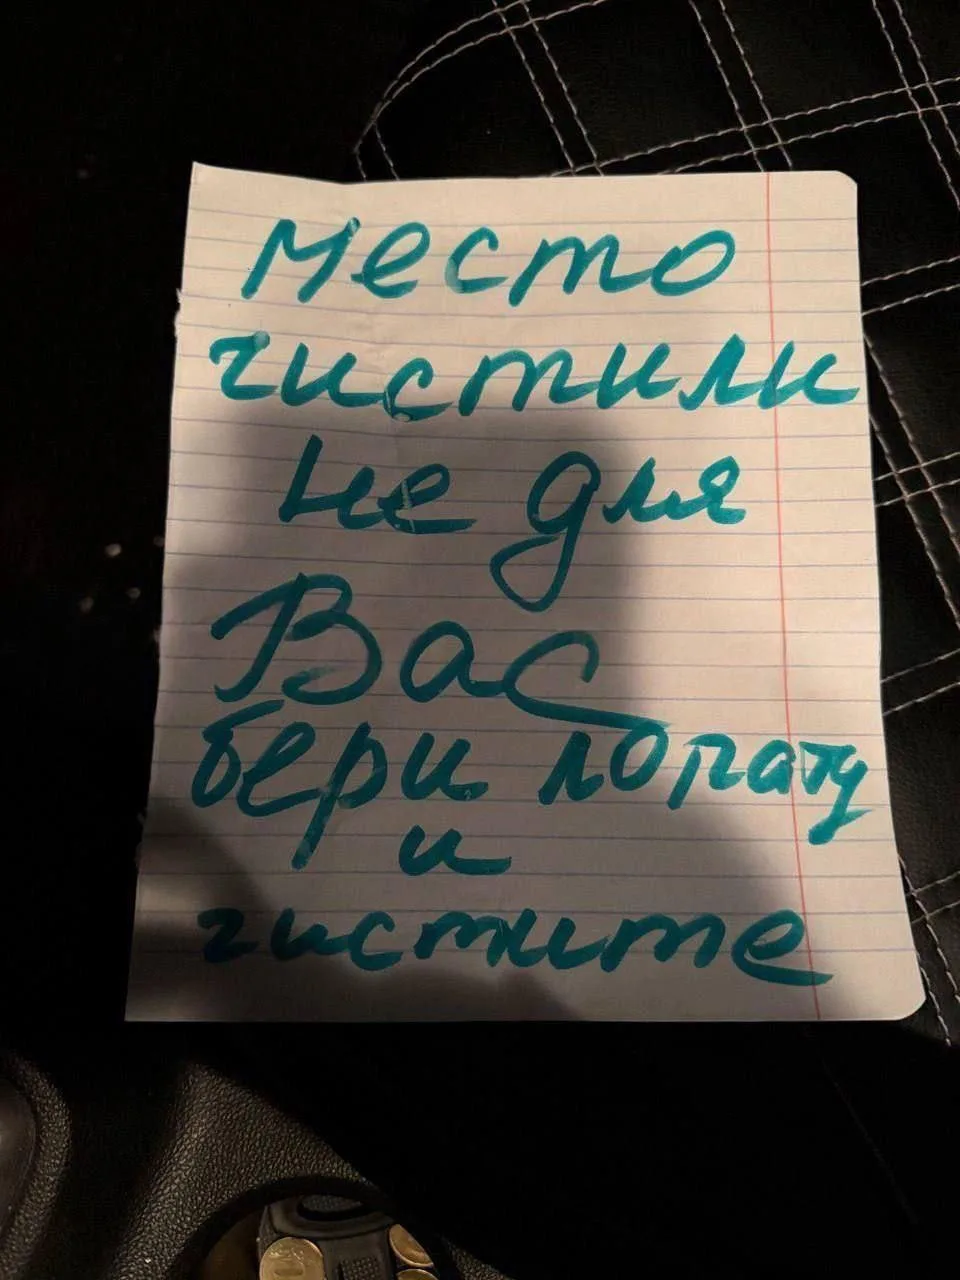 Место
чистили
не для
Вас
бери лопату
и
чистите